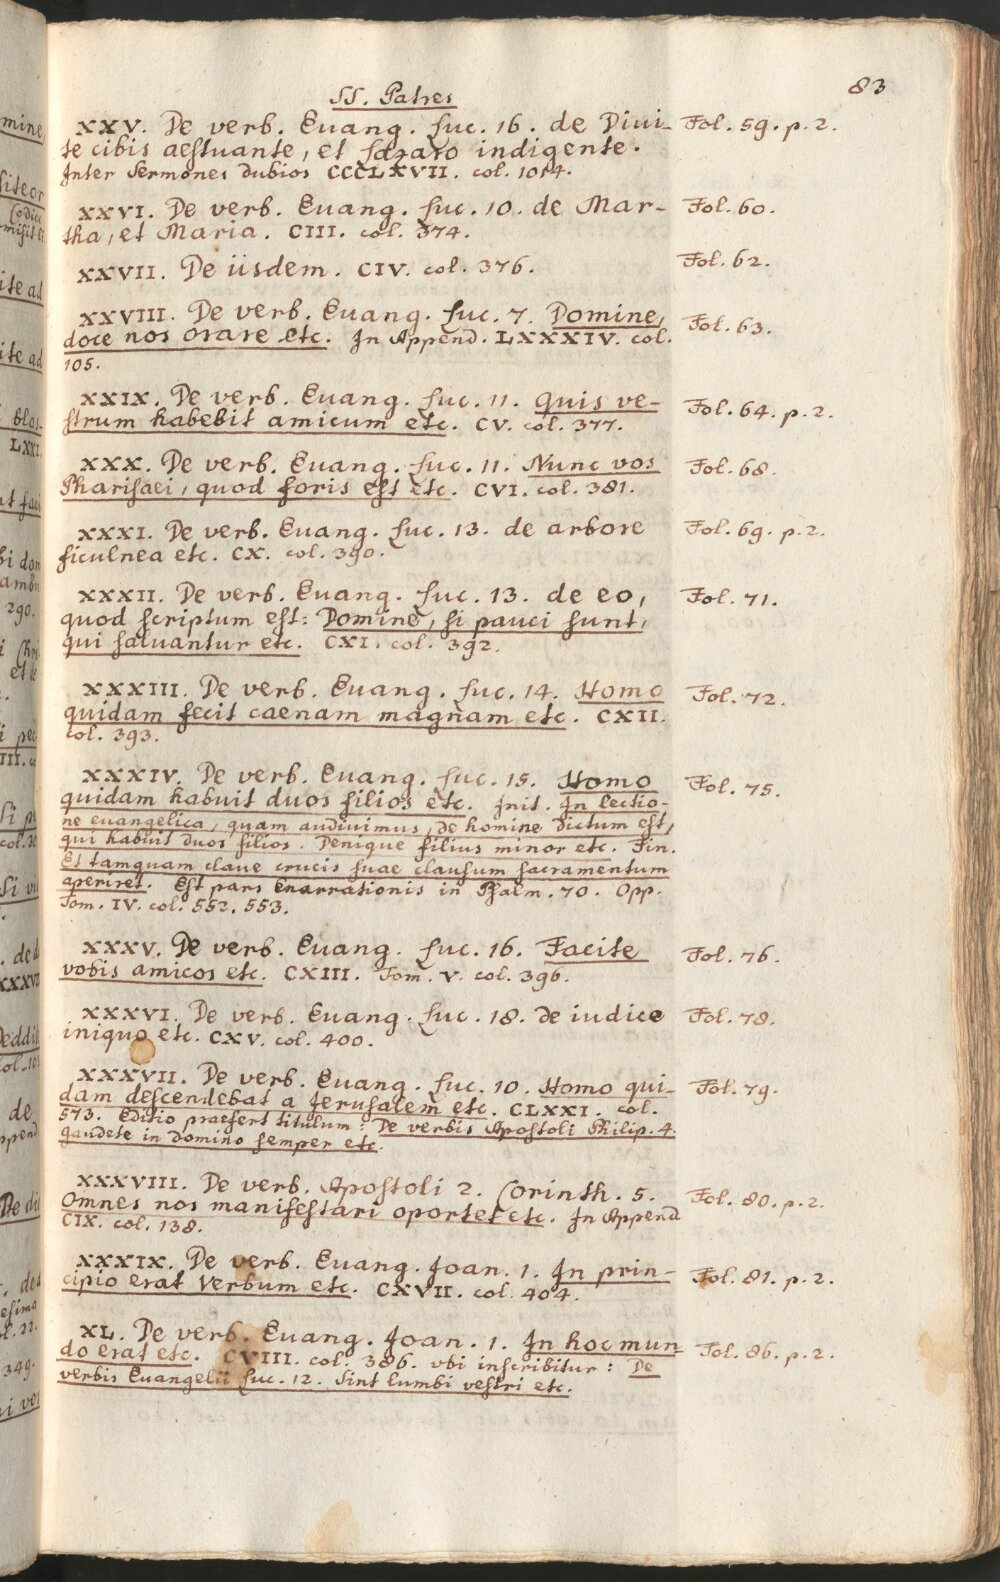 SS. Patres
83
XXV. De verb. Euang. Luc. 16. de Diui-
Fol. 59. p. 2.
te cibis aestuante, et Lazaro indigente.
Inter Sermones dubios CCCLXVII. col. 1014.
XXVI. De verb. Euang. Luc. 10. de Mar-
Fol. 60.
tha, et Maria. CIII. col. 374.
XXVII. De iisdem. CIV. col. 376.
Fol. 62.
XXVIII. De verb. Euang. Luc. 7. Domine,
Fol. 63.
doce nos orare etc. In Append. LXXXIV. col.
105.
XXIX. De verb. Euang. Luc. 11. Quis ve-
Fol. 64. p. 2.
strum habebit amicum etc. CV. col. 377.
XXX. De verb. Euang. Luc. 11. Nunc vos
Fol. 68.
Pharisaei, quod foris est etc. CVI. col. 381.
XXXI. De verb. Euang. Luc. 13. de arbore
Fol. 69. p. 2.
ficulnea etc. CX. col. 390.
XXXII. De verb. Euang. Luc. 13. de eo,
Fol. 71.
quod scriptum est: Domine, si pauci sunt,
qui saluantur etc. CXI. col. 392.
XXXIII. De verb. Euang. Luc. 14. Homo
Fol. 72.
quidam fecit caenam magnam etc. CXII.
col. 393.
XXXIV. De verb. Euang. Luc. 15. Homo
Fol. 75.
quidam habuit duos filios etc. Init. In lectio-
ne euangelica, quam audiuimus, de homine dictum est,
qui habuit duos filios. Denique filius minor etc. Fin.
Et tamquam claue crucis suae clausum sacramentum
aperiret. Est pars Enarrationis in Psalm. 70. Opp.
Tom. IV. col. 552. 553.
XXXV. De verb. Euang. Luc. 16. Facite
Fol. 76.
vobis amicos etc. CXIII. Tom. V. col. 396.
XXXVI. De verb. Euang. Luc. 18. de iudice
Fol. 78.
iniquo etc. CXV. col. 400.
XXXVII. De verb. Euang. Luc. 10. Homo qui-
Fol. 79.
dam descendebat a Jerusalem etc. CLXXI. col.
573. Editio praefert titulum: De verbis Apostoli Philip. 4.
gaudete in Domino semper etc.
XXXVIII. De verb. Apostoli 2. Corinth. 5.
Fol. 80. p. 2.
Omnes nos manifestari oportet etc. In Append
CIX. col. 138.
XXXIX. De verb. Euang. Joan. 1. In prin-
Fol. 81. p. 2.
cipio erat Verbum etc. CXVII. col. 404.
XL. De verb. Euang. Joan. 1. In hoc mun-
Fol. 86. p. 2.
do erat etc. CVIII. col. 386. vbi inscribitur: De
verbis Euangelii Luc. 12. Sint lumbi vestri etc.